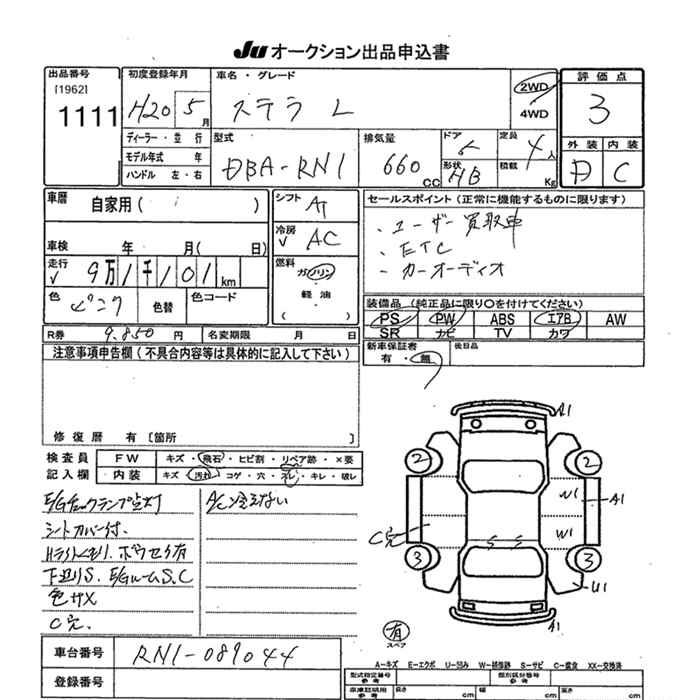 Ju オークション出品申込書
出品番号 初度登録年月 車名・グレード 評価点
[1962] 1111 H20 5月 ステラ L 2WD 4WD 3
ディーラー・並行 型式 排気量 ドア 定員 外装 内装
モデル年式 年 DBA-RN1 660cc 5 4人 D C
ハンドル 左・右 形状 HB 積載 Kg
車歴 自家用( ) シフト AT セールスポイント(正常に機能するものに限ります)
冷房 AC ・ユーザー買取車
車検 年 月( 日) ・ETC
走行 9万1千101km 燃料 ガソリン ・カーオーディオ
軽油 ( )
色 ピンク 色替 色コード 装備品(純正品に限り○を付けてください)
PS PW ABS エアB AW
R券 9,850円 名変期限 月 日 SR ナビ TV カワ
注意事項申告欄(不具合内容等は具体的に記入して下さい) 新車保証書 後日品
有・無
修復歴 有 [箇所 ]
検査員 FW キズ・飛石・ヒビ割・リペア跡・×要
記入欄 内装 キズ・汚れ・コゲ・穴・スレ・キレ・破レ
A1
2 2
W1 A1
W1
C穴
3 3
U1
A1
E/Gチェックランプ点灯 AC冷えない
シートカバー付.
Hライトくもり.
下廻りS. E/GルームS.C
色サメ
C穴.
有
スペア
車台番号 RN1-089044
登録番号
A-キズ E-エクボ U-凹み W-補修跡 S-サビ C-腐食 XX-交換済
型式指定番号 参考 類別区分番号 参考
車庫証明用 参考 長さ cm 幅 cm 高さ cm